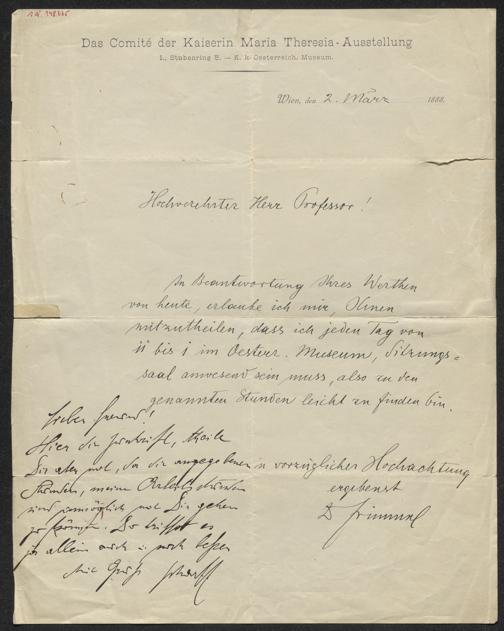 Das Comité der Kaiserin Maria Theresia-Ausstellung
I., Stubenring 5. — K. k. Oesterreich. Museum.
Wien, den 2. März 1888.
Hochverehrter Herr Professor!
In Beantwortung Ihres Werthen
von heute, erlaube ich mir, Ihnen
mitzutheilen, dass ich jeden Tag von
11 bis 1 im Oesterr. Museum, Sitzungs=
saal anwesend sein muss, also zu den
genannten Stunden leicht zu finden bin.
In vorzüglicher Hochachtung
ergebenst
D Frimmel
Lieber Freund!
Hier die Zuschrift, theile
Dir aber mit, da die angegebenen
Stunden, meine Arbeitsstunden
sind unmöglich mit Dir gehen
zu können. Du triffst es
ja allein auch u. noch besser
Mit Gruß